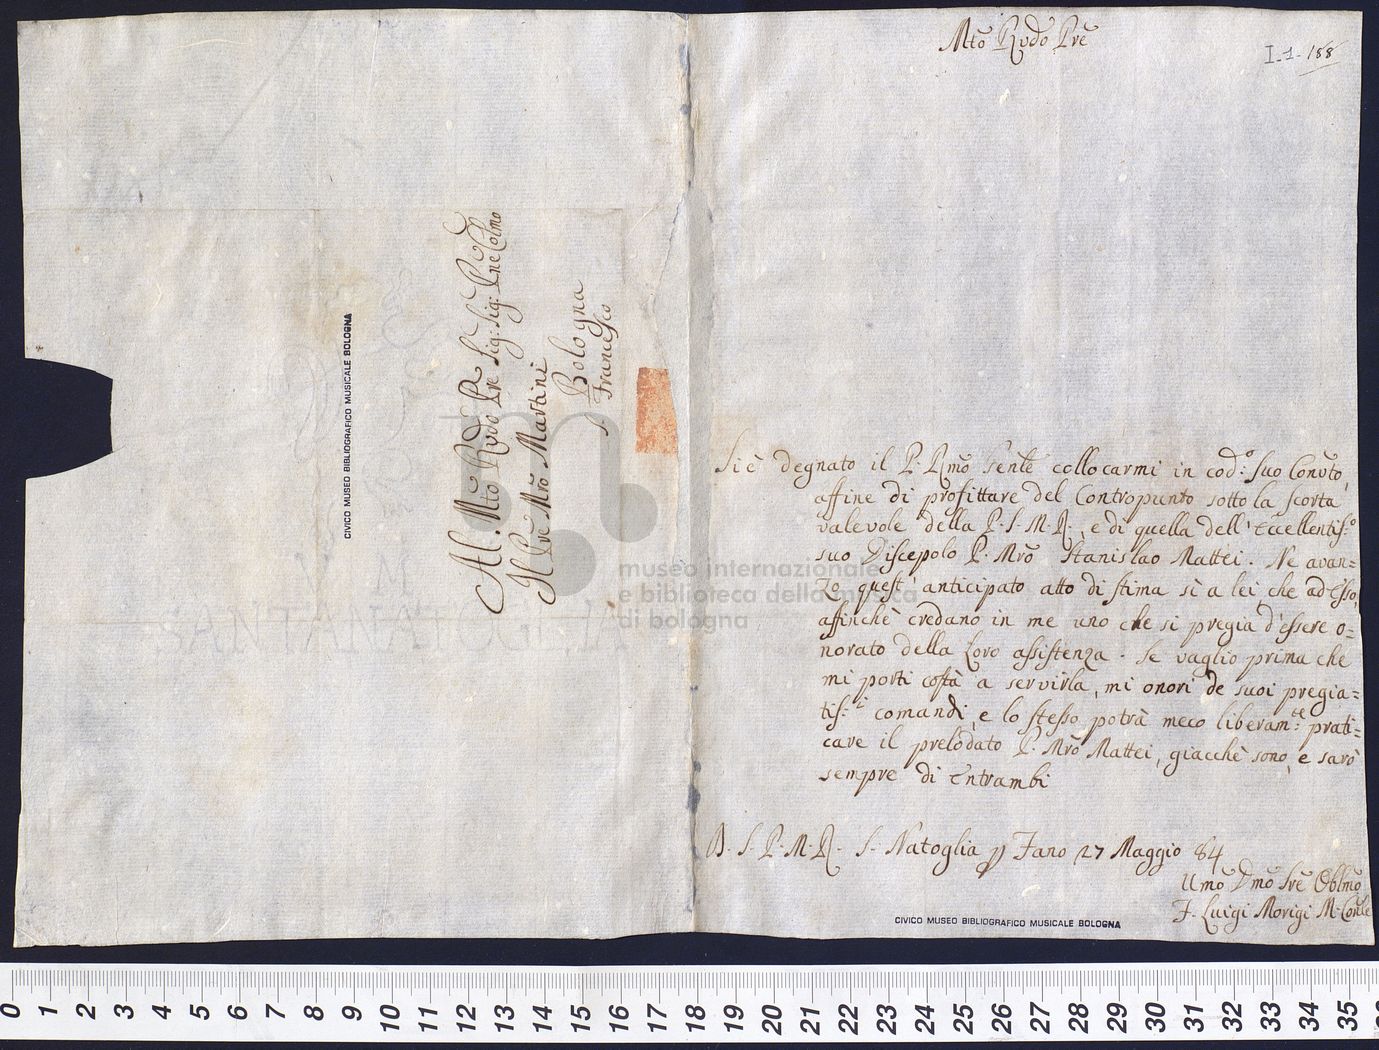 Mto Rvdo Pre
I-1-188
Si è degnato il P. Rmo Gente collocarmi in cod:o Suo Convto,
affine di profittare del Contropunto sotto la scorta
valevole della P. S. M. R., e di quella dell' Eccellentis:o
suo Discepolo P. Mro Stanislao Mattei. Ne avan=
zo quest' anticipato atto di stima sì a lei, che ad Esso,
affinchè credano in me uno che si pregia d'essere o=
norato della Loro assistenza. Se vaglio prima che
mi porti costà a servirla, mi onori de suoi pregia=
tis:i comandi, e lo stesso potrà meco liberam:te prati=
care il prelodato P. Mro Mattei, giacchè sono, e sarò
sempre di Entrambi
D. S. P. M. R. S. Natoglia p Fano 27 Maggio 84
Umo Dmo Sre Obblmo
F. Luigi Morigi M. Conle
Al Mto Rvdo Pre Sig: Sig: Pne Colmo
Il Pre Mro Martini
Bologna
S. Francesco
CIVICO MUSEO BIBLIOGRAFICO MUSICALE BOLOGNA
CIVICO MUSEO BIBLIOGRAFICO MUSICALE BOLOGNA
museo internazionale
e biblioteca della musica
di bologna
0 1 2 3 4 5 6 7 8 9 10 11 12 13 14 15 16 17 18 19 20 21 22 23 24 25 26 27 28 29 30 31 32 33 34 35